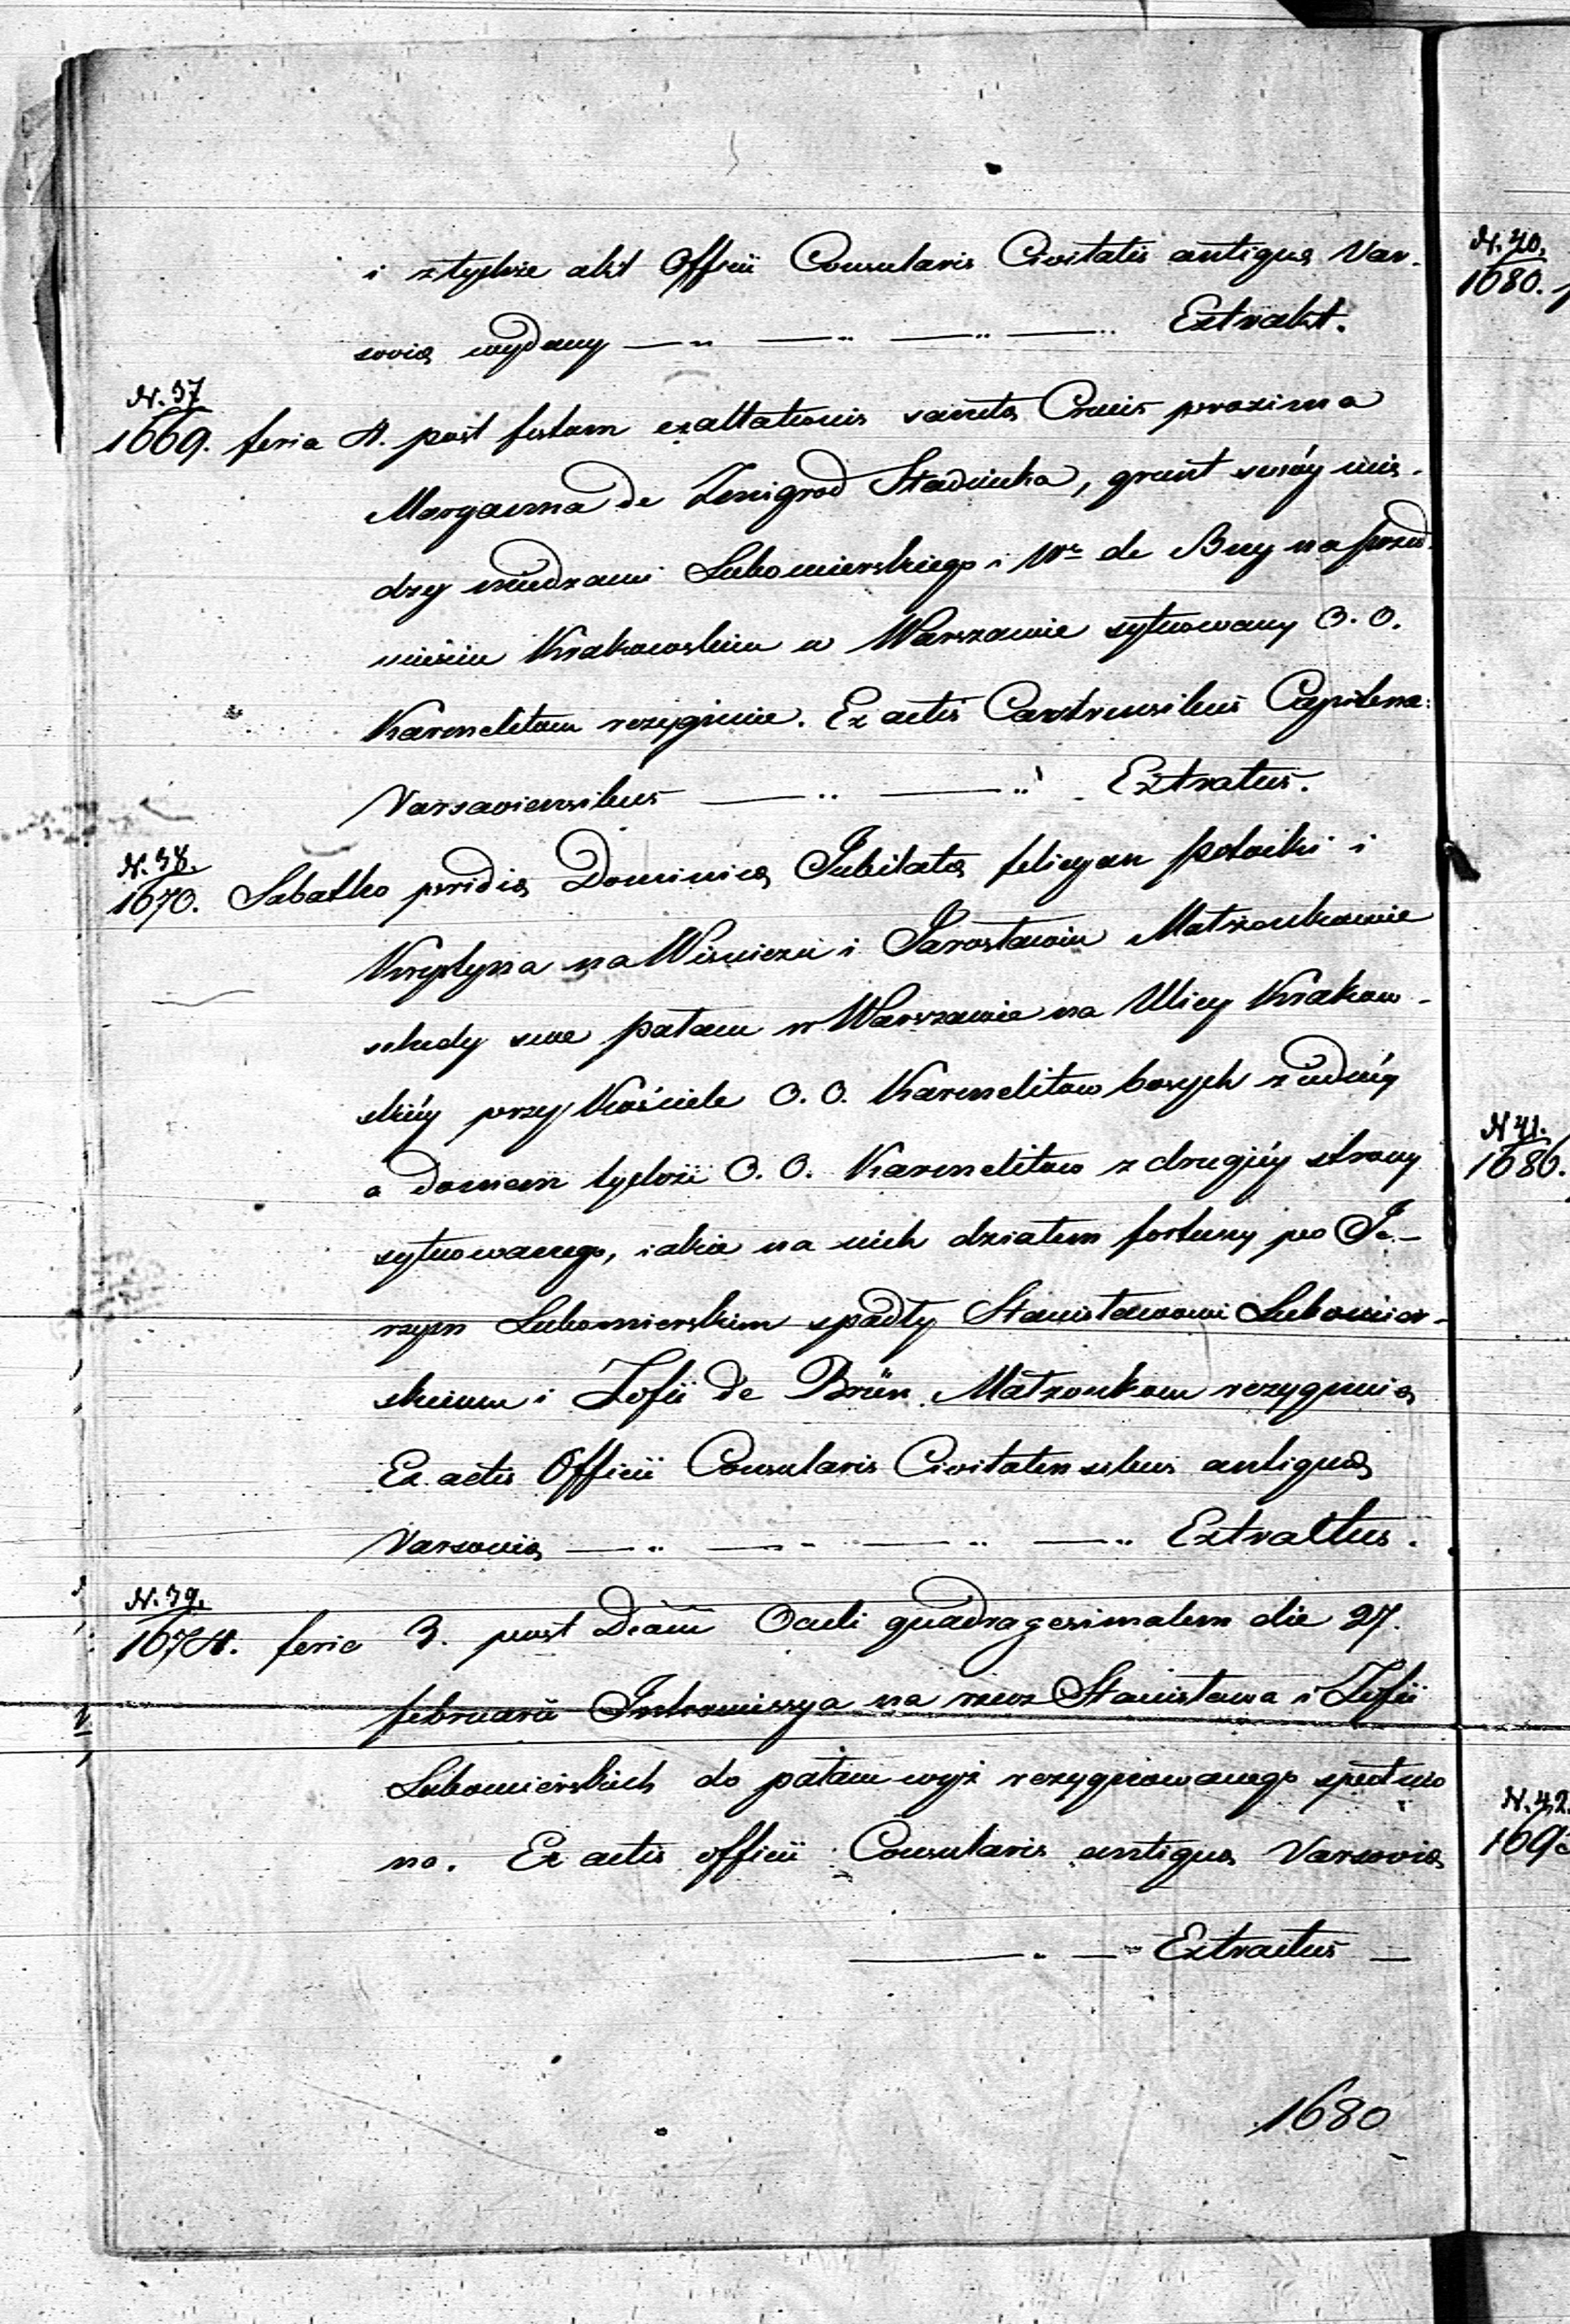 i ztychże akt Officii Consularis Civitatis antiquæ Var-
soviæ wydany —〃 —〃 —〃 —〃 Extrakt.
N. 37
1669. feria 4. post festum exaltationis sanctæ Crucis proxima
Maryanna de Zmigrod Stadnicka, grunt swóy mię-
dzy miedzami Lubomierskiego i Wº de Buy na przed
mieściu Krakowskim w Warszawie sytuowany O. O.
Karmelitom rezygnuie. Ex actis Castrensibus Capitanea:
Varsaviensibus —〃 —〃 Extractus.
N. 38.
1670. Sabatho pridie Dominicæ Jubilatæ felicyan potocki i
Krystyna na Wiśniczu i Jarosławiu Małżonkowie
schedy swe pałacu w Warszawie na Ulicy Krakow-
skiéy przy Kościele O. O. Karmelitow bosych z iednéy
a domem tychże O. O. Karmelitow z drugiéy strony
sytuowanego, iakie na nich działem fortuny po Je-
rzym Lubomierskim spadły Stanisławowi Lubomier-
skiemu i Zofii de Brün Małżonkom rezygnuią
Ex actis Officii Consularis Civitatensibus antiquæ
Varsoviæ —〃 —〃 —〃 —〃 Extractus.
N. 39.
1674. feria 3. post Dcam Oculi quadragesimalem die 27.
februarii Intromissya na rzecz Stanisława i Zofii
Lubomierskich do pałacu wyż rezygnowanego spełnio
na. Ex actis officii Consularis antiquæ Varsoviæ
—〃 —〃 Extractus —
1680
N. 40.
1680.
N 41.
1686.
N. 42.
169